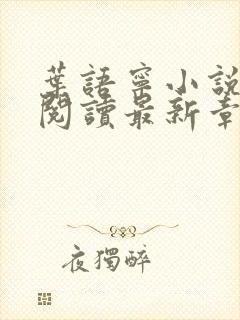 葉語寧小說
閱讀最新章
夜獨醉